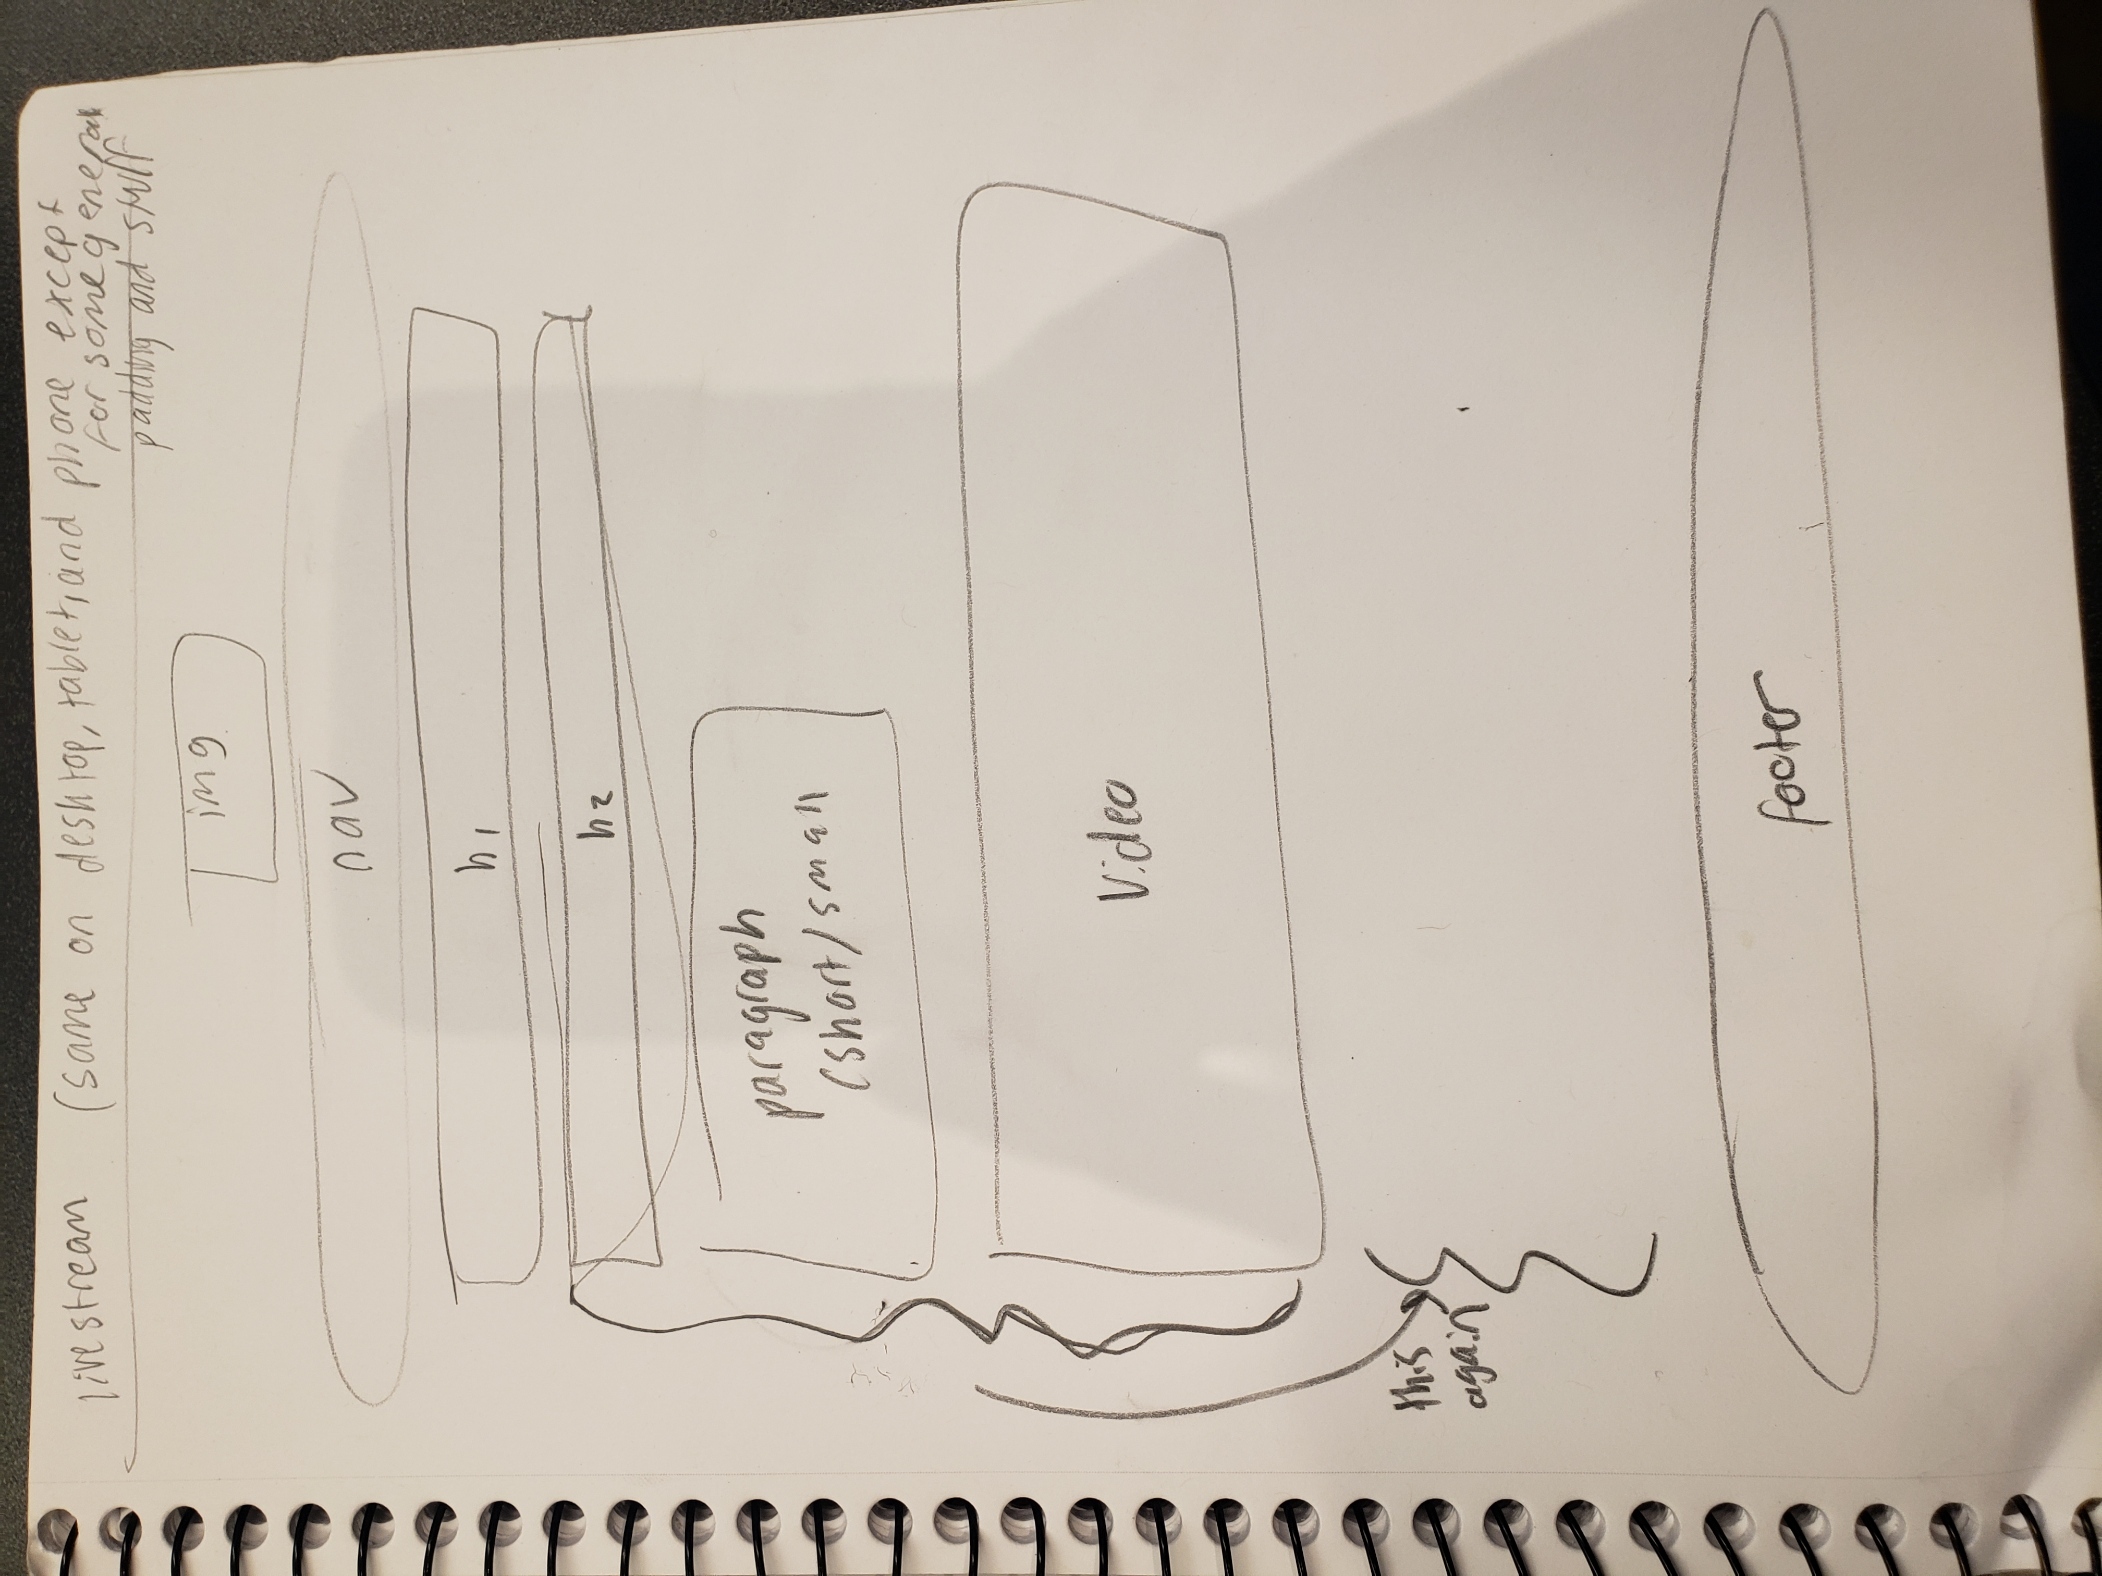 livestream (same on desktop, tablet, and phone except
for some general
padding and stuff
img
nav
h1
h2
paragraph
(short/small
Video
this
again
footer